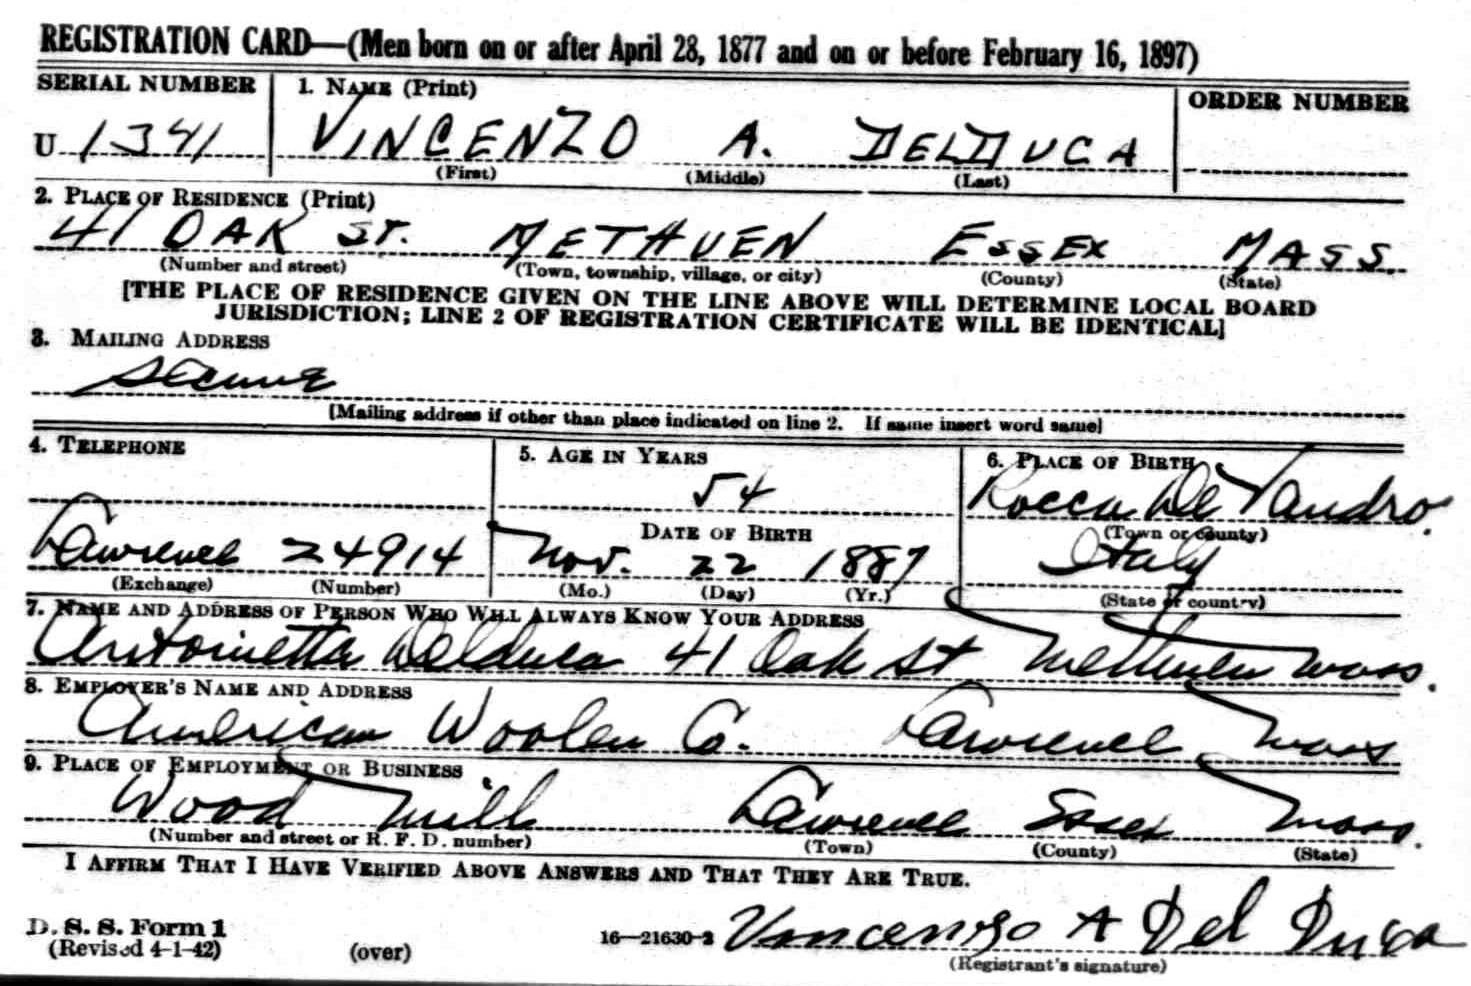 REGISTRATION CARD—(Men born on or after April 28, 1877 and on or before February 16, 1897)
SERIAL NUMBER 1. NAME (Print) ORDER NUMBER
U 1341 VINCENZO A. DELDUCA
(First) (Middle) (Last)
2. PLACE OF RESIDENCE (Print)
41 OAK ST. METHUEN ESSEX MASS.
(Number and street) (Town, township, village, or city) (County) (State)
[THE PLACE OF RESIDENCE GIVEN ON THE LINE ABOVE WILL DETERMINE LOCAL BOARD
JURISDICTION; LINE 2 OF REGISTRATION CERTIFICATE WILL BE IDENTICAL]
3. MAILING ADDRESS
Same
[Mailing address if other than place indicated on line 2. If same insert word same]
4. TELEPHONE 5. AGE IN YEARS 6. PLACE OF BIRTH
54 Rocca De Vandro.
DATE OF BIRTH (Town or county)
Lawrence 24914 Nov. 22 1887 Italy
(Exchange) (Number) (Mo.) (Day) (Yr.) (State or country)
7. NAME AND ADDRESS OF PERSON WHO WILL ALWAYS KNOW YOUR ADDRESS
Antoinetta Delduca 41 Oak St Methuen Mass.
8. EMPLOYER'S NAME AND ADDRESS
American Woolen Co. Lawrence Mass
9. PLACE OF EMPLOYMENT OR BUSINESS
Wood Mill Lawrence Essex Mass.
(Number and street or R. F. D. number) (Town) (County) (State)
I AFFIRM THAT I HAVE VERIFIED ABOVE ANSWERS AND THAT THEY ARE TRUE.
D. S. S. Form 1
(Revised 4-1-42) (over) 16—21630-2 Vancenzo A Del Duca
(Registrant's signature)